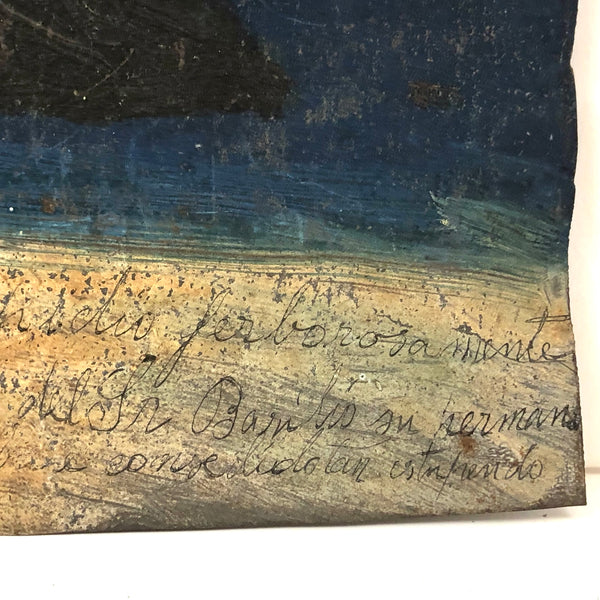 ferborosamente
del Sr Basilio su herman
me consedido tan estupendo